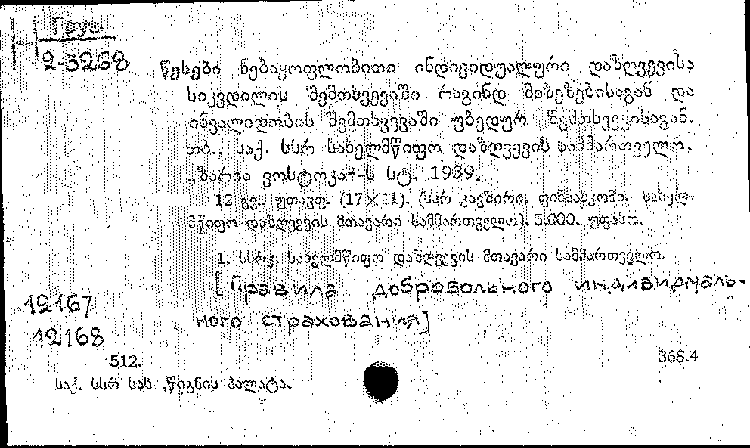 Груз
2-3238
წესები ნებაყოფლობითი ინდივიდუალური დაზღვევისა
სიკვდილის შემთხვევაში რაგინდ მიზეზებისაგან და
ინვალიდობის შემთხვევაში უბედურ შემთხვევისაგან.
თბ., საქ. სსრ სახელმწიფო დაზღვევის სამმართველო,
„ზარია ვოსტოკა“-ს სტ. 1939.
12 გვ. უთავფ. (17×11). (სსრ კავშირი. ფინსახკომი. სახელ-
მწიფო დაზღვევის მთავარი სამმართველო). 5.000. უფასო.
1. სსრკ. სახელმწიფო დაზღვევის მთავარი სამმართველო.
[Правила добровольного индивидуаль-
ного страхования]
12167
12168
512.
368.4
საქ. სსრ სახ. წიგნის პალატა.